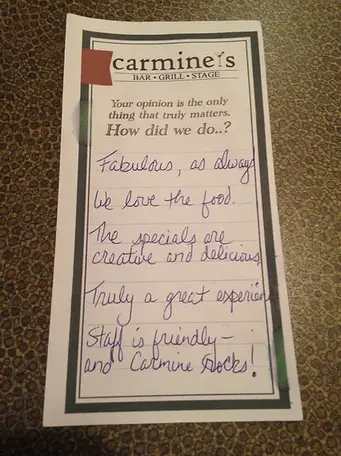 carmine's
BAR • GRILL • STAGE
Your opinion is the only
thing that truly matters.
How did we do..?
Fabulous, as always
We love the food.
The specials are
creative and delicious
Truly a great experience
Staff is friendly -
and Carmine Rocks!